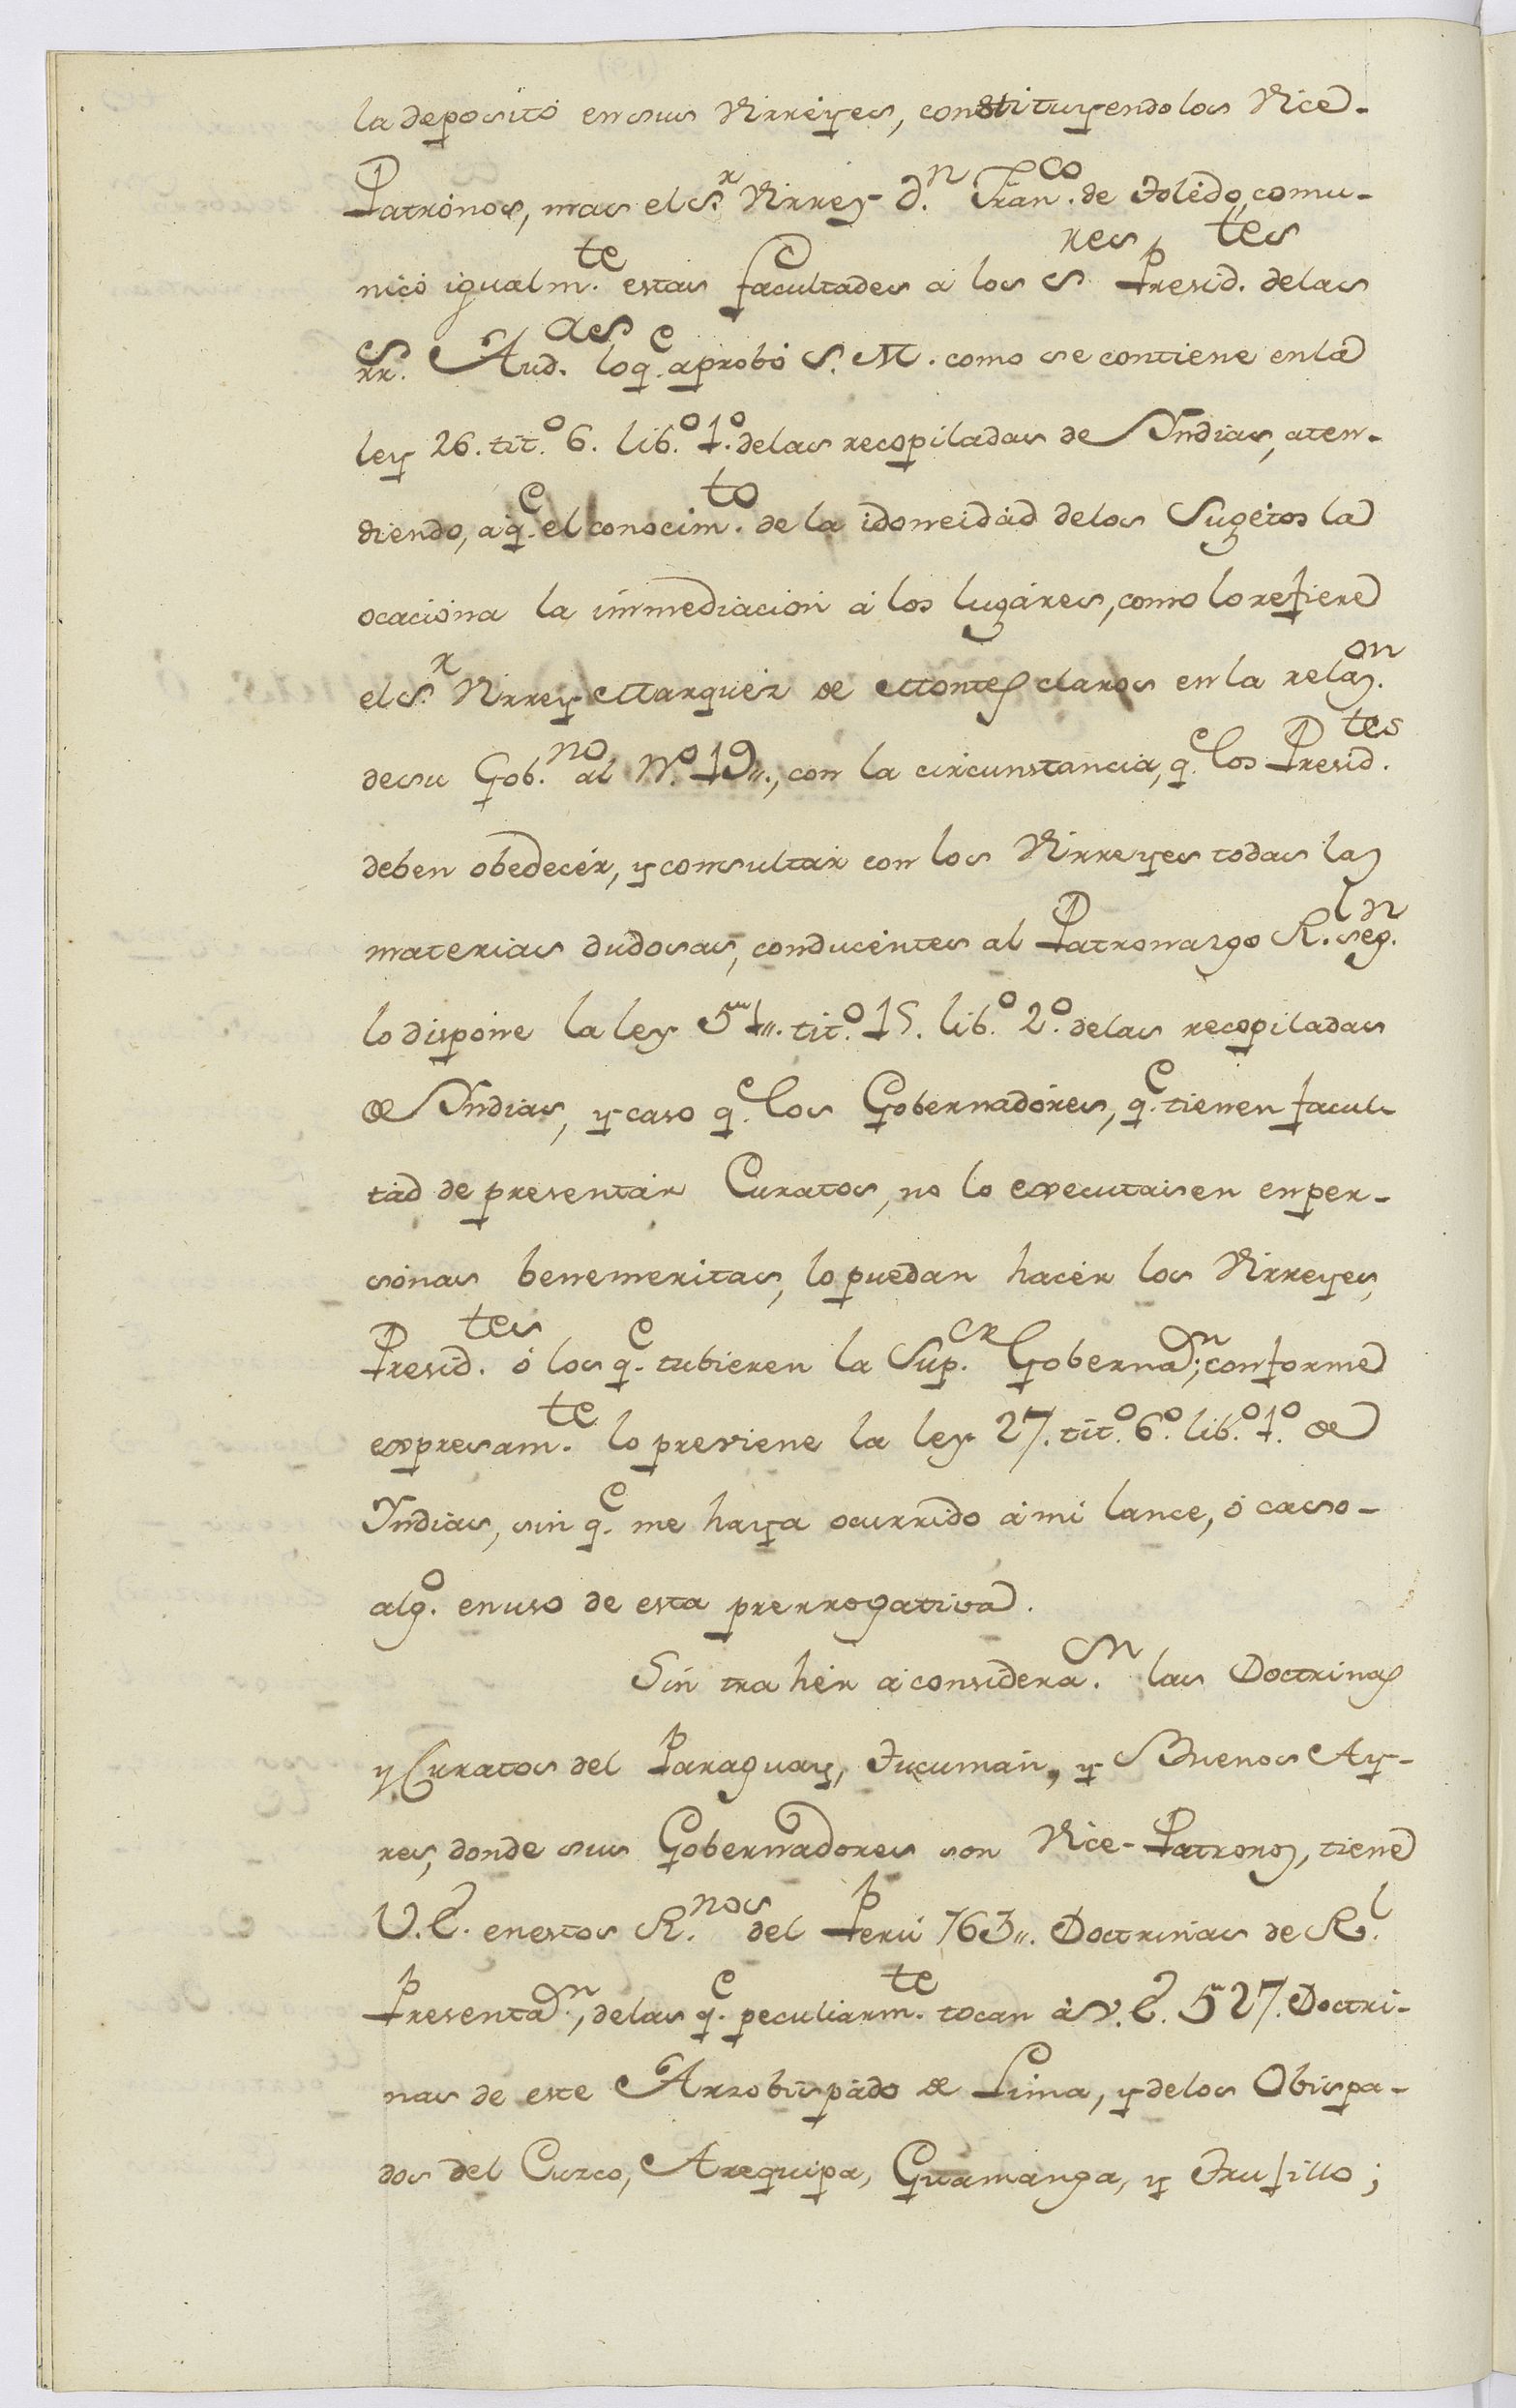 la deposito en sus Virreyes, constituyendolos Vice-
Patronos, mas el S.r Virrey D.n Fran.co de Toledo, comu-
nicó igualm.te estas facultades á los S.res Presid.tes delas
RR.s Aud.as loq.e aprobó S. M. como se contiene en la
ley 26. tit.o 6. lib.o 1.o delas recopiladas de Yndias, aten-
diendo, a q.e el conocim.to de la idoneidad delos Sugetos la
ocaciona la inmediacion á los lugares, como lo refiere
el S.r Virrey Marquez de Montes claros en la relaz.on
de su Gob.no al N.o 19,,., con la circunstancia, q.e los Presid.tes
deben obedecér, y consultar con los Virreyes todas las
materias dudosas, conducentes al Patronazgo R.l seg.n
lo dispone la ley 51,,. tit.o 15. lib.o 2.o delas recopiladas
de Yndias, y caso q.e los Gobernadores, q.e tienen facul-
tad de presentar Curatos, no lo executaisen en per-
sonas benemeritas, lo puedan hacér los Virreyes,
Presid.tes ó los q.e tubieren la Sup.er Governa.on; conforme
expresam.te lo previene la ley 27. tit.o 6.o lib.o 1.o de
Yndias, sin q.e me haya ocurrido á mi lance, ó caso-
alg.o en uso de esta prerrogativa.
Sin trahér á considera.on las Doctrinas
y Curatos del Paraguay, Tucumán, y Buenos Ay-
res, donde sus Gobernadores son Vice-Patronos, tiene
V.E. en estos R.nos del Perú 763,,. Doctrinas de R.l
Presenta.on, delas q.e peculiarm.te tocan á V.E. 527. Doctri-
nas de este Arzobispado de Lima, y delos Obispa-
dos del Cuzco, Arequipa, Guamanga, y Truxillo;